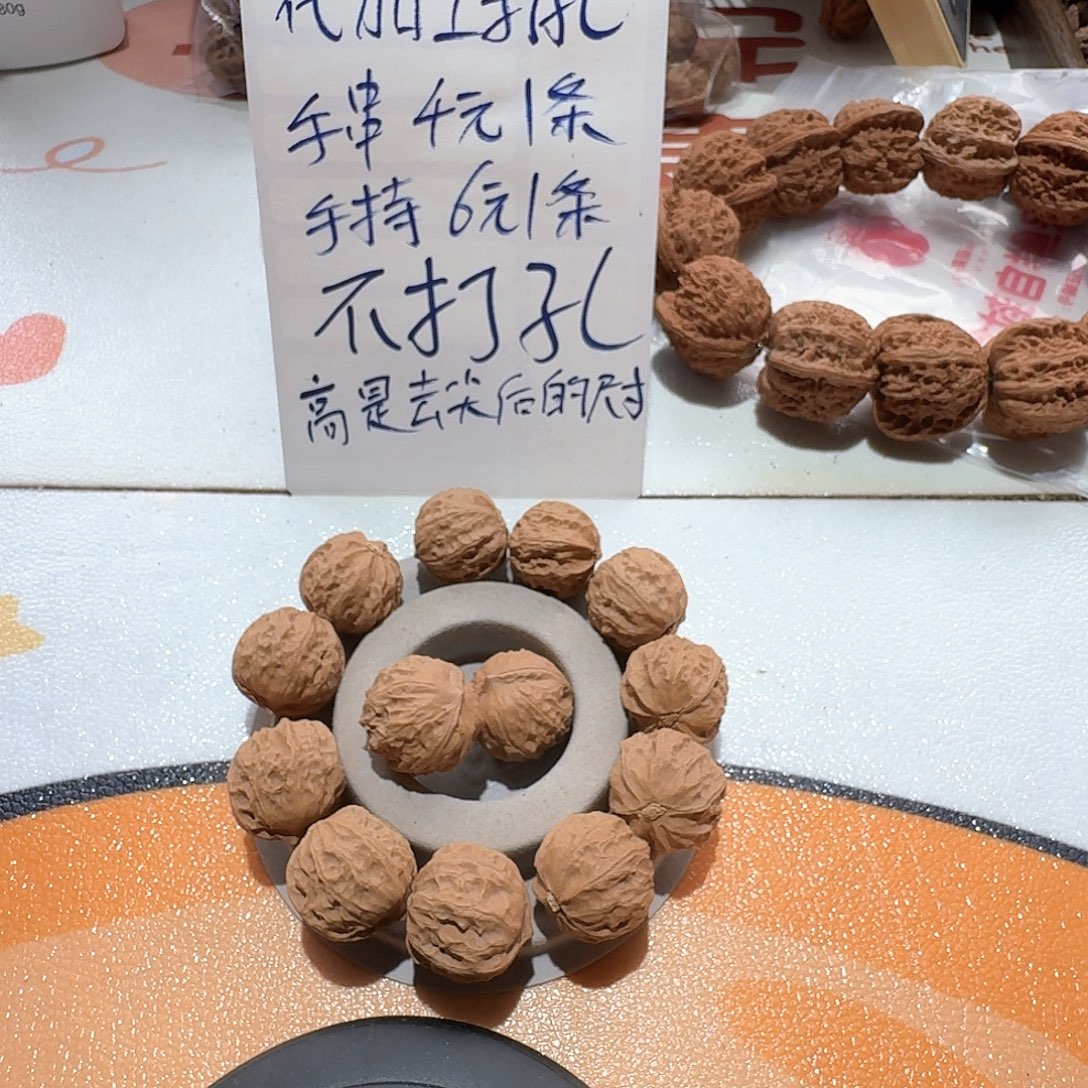 代加工打孔
手串 4元1条
手持 6元1条
不打孔
高是去尖后的尺寸
80g